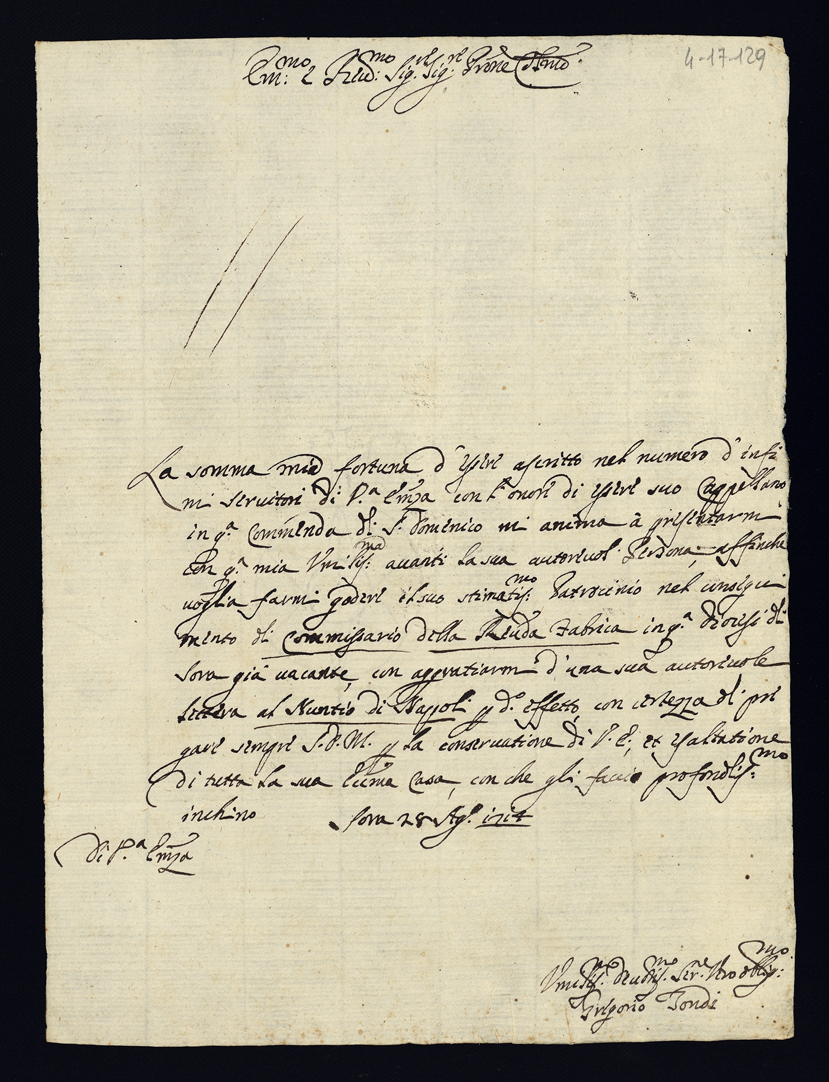 4-17-129
Em:mo e Reu:mo Sig:re Sig:re Prone
La somma mia fortuna d'esser ascritto nel numero d'infi
mi seruitori di V.a Emza con l'onore di esser suo Cappellano
in q.a Commenda di S. Domenico mi anima à presentarmi
con q.a mia Vmilis:ma auanti la sua autoreuol Persona, affinche
voglia farmi godere il suo stimatis:mo Patrocinio nel consegui
mento di Commissario della Reuda Fabrica in q.a Diocesi di
Sora già vacante, con aggratiarmi d'una sua autoreuole
lettera al Nuntio di Napoli p d.o effetto, con certezza di pre
gare sempre S.D.M. p la conseruatione di V.E., et esaltatione
di tutta la sua Ecc.ma Casa, con che gli faccio profondis:mo
inchino Sora 28 Ag.o 1714
Di V.a Emza
Vmilis:mo Deuotis:mo Ser.e Vro obblig:mo
Gregorio Tondi